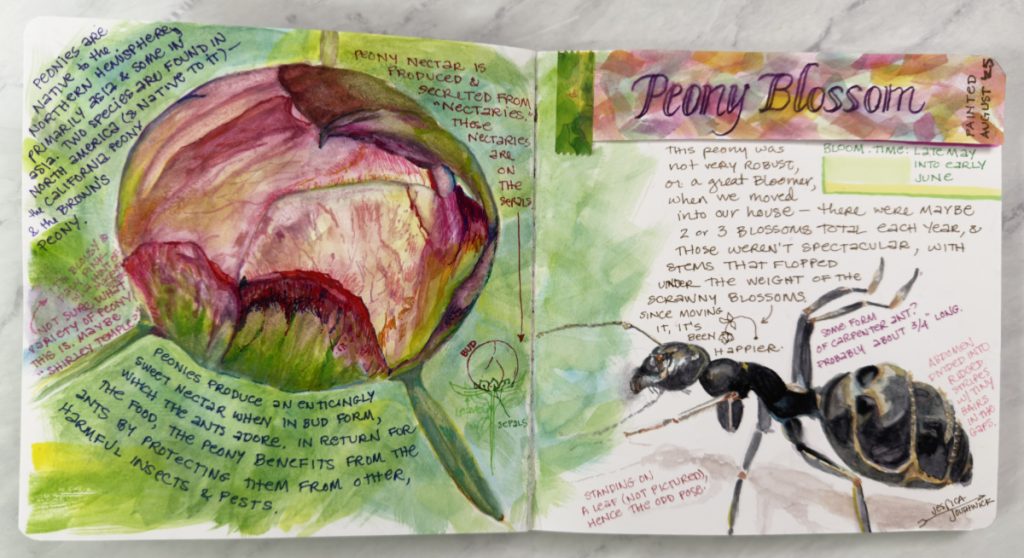 PEONIES ARE
NATIVE to the
NORTHERN HEMISPHERE,
PRIMARILY ASIA & SOME IN
ASIA. TWO SPECIES ARE FOUND IN
NORTH AMERICA (& NATIVE TO IT) –
the CALIFORNIA PEONY
& the BROWN'S
PEONY.
(NOT SURE WHAT
VARIETY OF PEONY
THIS IS. MAYBE
SHIRLEY TEMPLE?)
PEONY NECTAR IS
PRODUCED &
SECRETED FROM
"NECTARIES."
THOSE
NECTARIES
ARE
ON
THE
SEPALS
BUD
SEPALS
PEONIES PRODUCE AN ENTICINGLY
SWEET NECTAR WHEN IN BUD FORM,
WHICH THE ANTS ADORE. IN RETURN FOR
THE FOOD, THE PEONY BENEFITS FROM THE
ANTS BY PROTECTING THEM FROM OTHER,
HARMFUL INSECTS & PESTS.
Peony Blossom
PAINTED
AUGUST '25
BLOOM TIME: LATE MAY
INTO EARLY
JUNE
THIS PEONY WAS
NOT VERY ROBUST,
OR A GREAT BLOOMER,
WHEN WE MOVED
INTO OUR HOUSE – THERE WERE MAYBE
2 OR 3 BLOSSOMS TOTAL EACH YEAR, &
THOSE WEREN'T SPECTACULAR, WITH
STEMS THAT FLOPPED
UNDER THE WEIGHT OF THE
SCRAWNY BLOSSOMS.
SINCE MOVING
IT, IT'S
BEEN
HAPPIER.
SOME FORM
OF CARPENTER ANT?
PROBABLY ABOUT 3/4" LONG.
ABDOMEN
DIVIDED INTO
RIDGED
STRIPES
W/ TINY
HAIRS
IN THE
GAPS.
STANDING ON
A LEAF (NOT PICTURED),
HENCE THE ODD POSE.